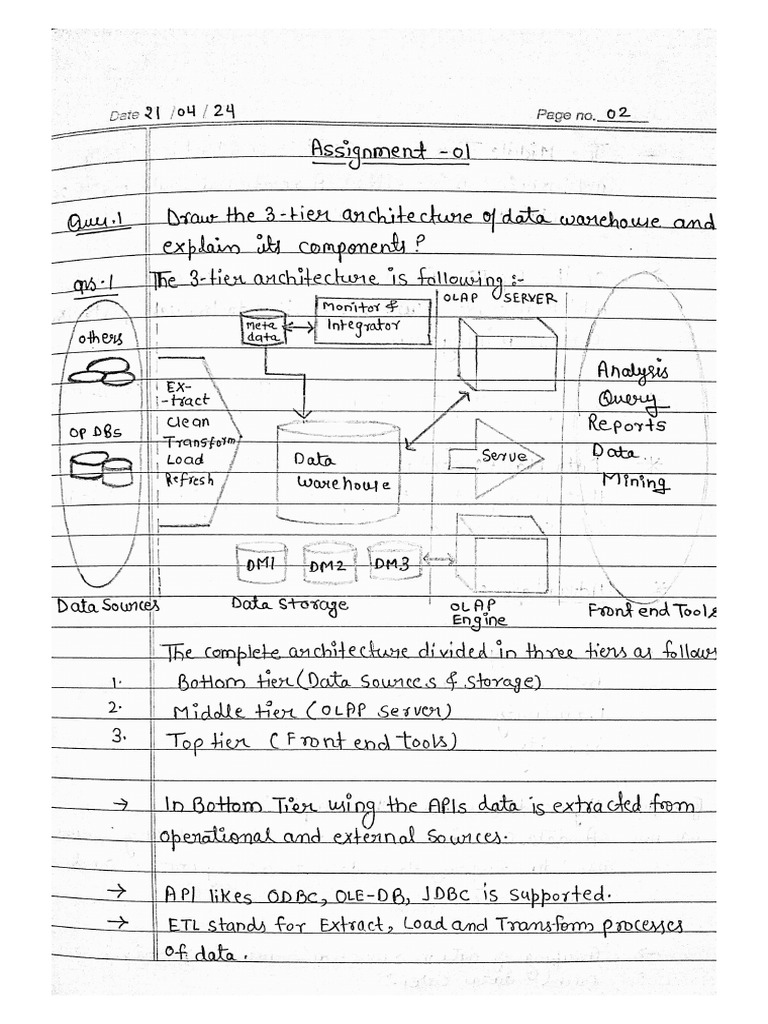 Date 21/04/24 Page no. 02
Assignment - 01
Ques.1 Draw the 3-tier architecture of data warehouse and
explain its components?
ans.1 The 3-tier architecture is following :-
others
OP DBs
Ex-
-tract
Clean
Transform
Load
Refresh
meta
data
Monitor &
Integrator
Data
warehouse
DM1 DM2 DM3
OLAP SERVER
Serve
Analysis
Query
Reports
Data
Mining
Data Sources Data Storage OLAP
Engine Front end Tools
The complete architecture divided in three tiers as follows
1. Bottom tier (Data Sources & Storage)
2. Middle tier (OLAP Server)
3. Top tier (Front end tools)
→ In Bottom Tier using the APIs data is extracted from
operational and external sources.
→ API likes ODBC, OLE-DB, JDBC is supported.
→ ETL stands for Extract, Load and Transform processes
of data.